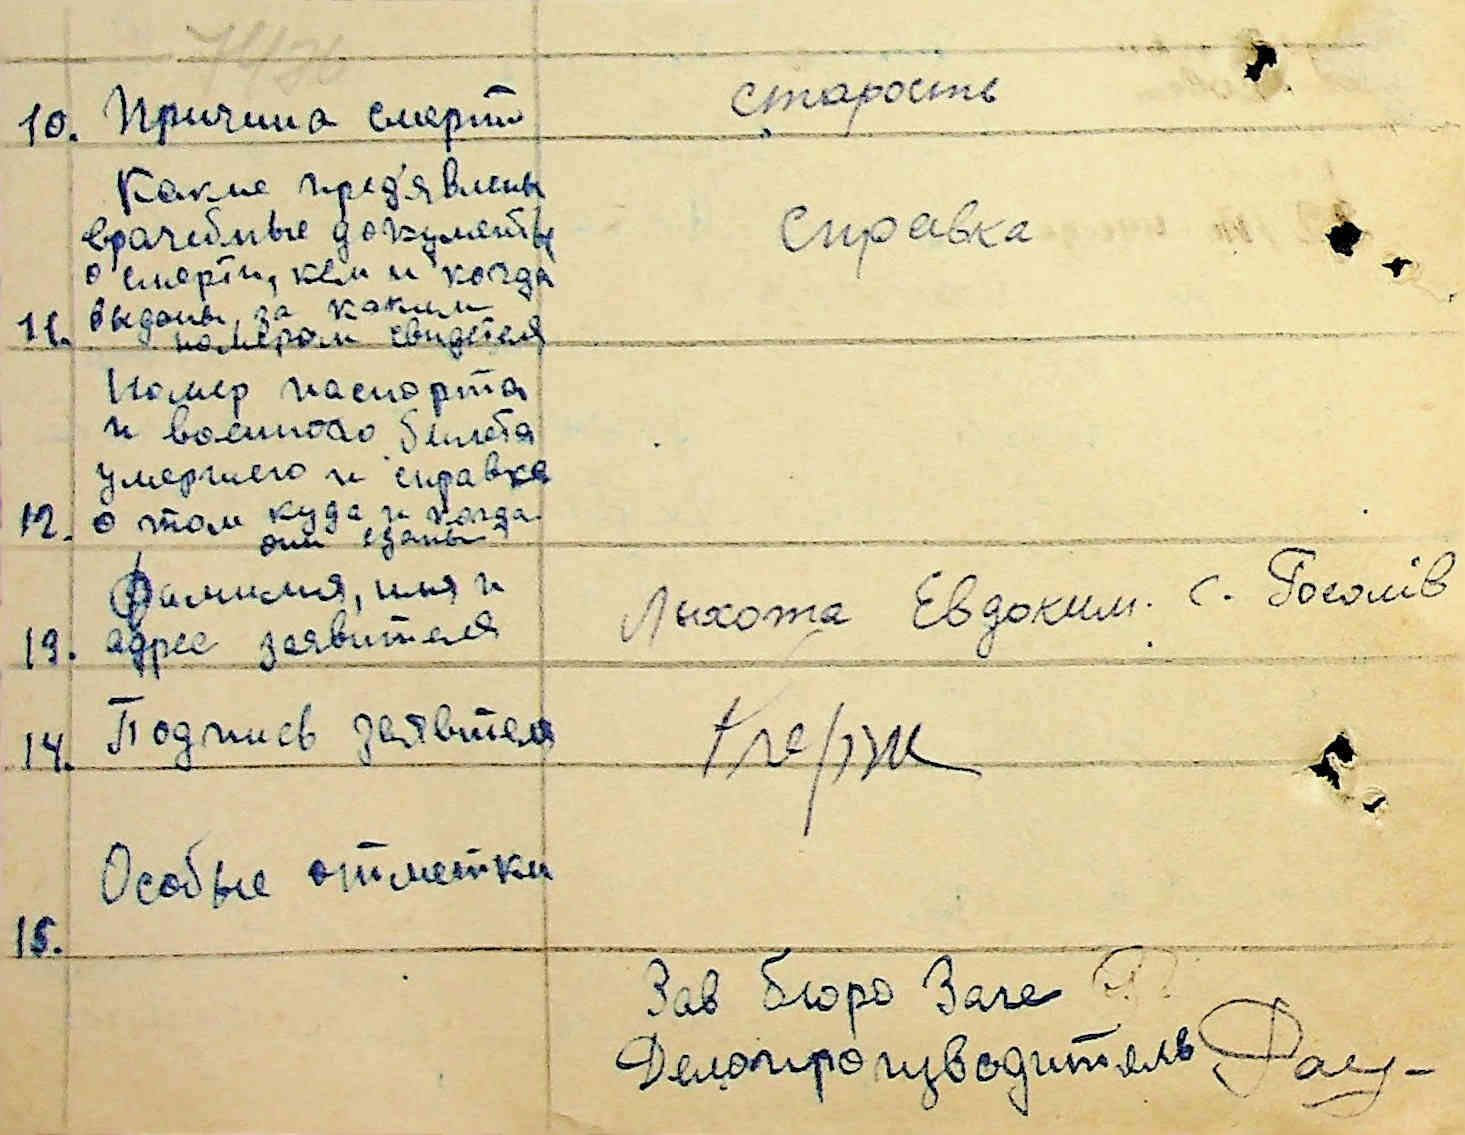 10. Причина смерти
старость
Какие пред'явлены
врачебные документы
о смерти, кем и когда
выданы, за каким
11. номером свидетеля
Справка
Номер паспорта
и военного билета
умершего и справка
12. о том куда и когда
они сданы
Фамилия, имя и
13. адрес заявителя
Лыхота Евдоким. с. Госолів
14. Подпись заявителя
Особые отметки
15.
Зав бюро Загс
Делопроизводитель